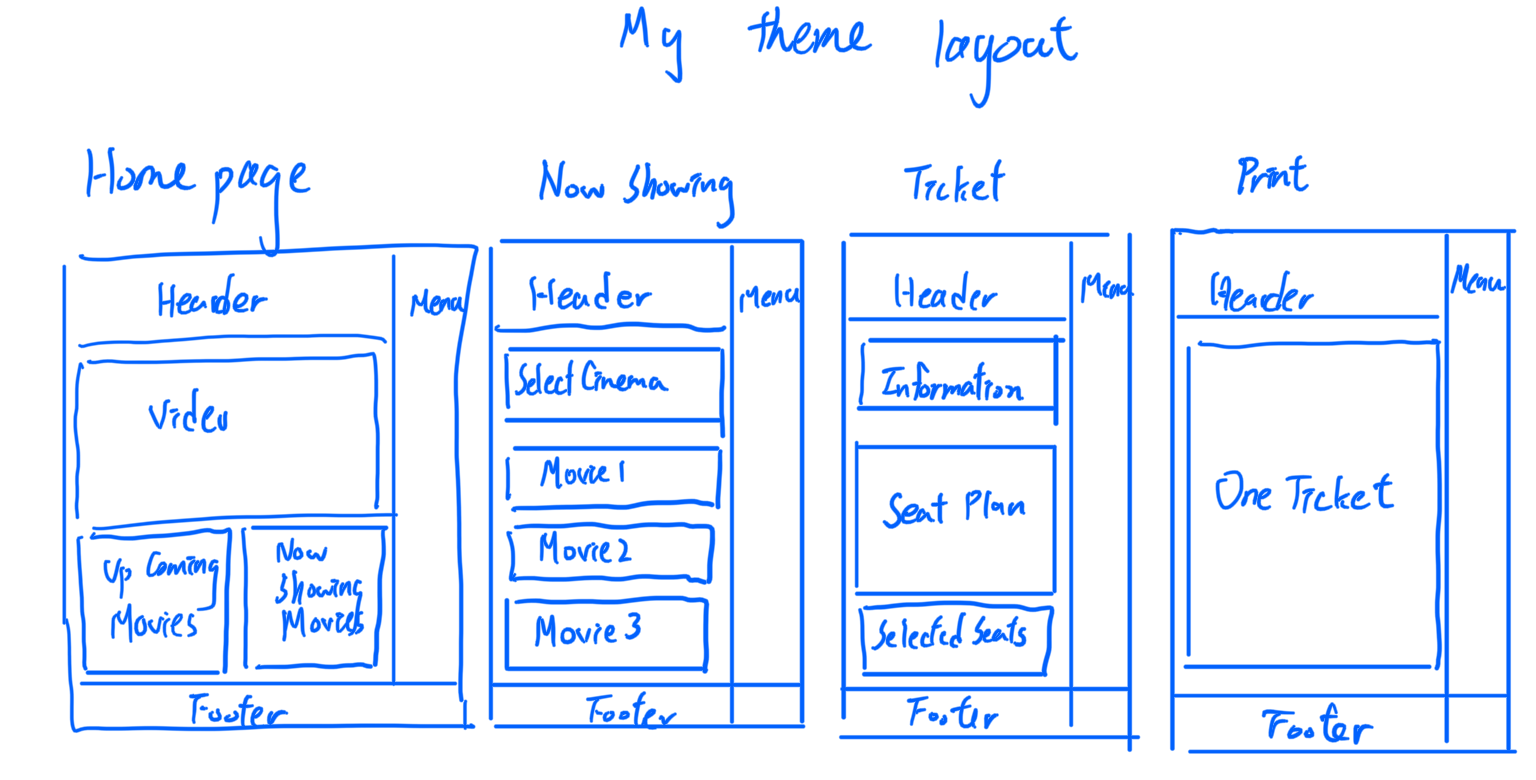 My theme layout
Home page
Header
Menu
Video
Up Coming
Movies
Now
Showing
Movies
Footer
Now Showing
Header
Menu
Select Cinema
Movie 1
Movie 2
Movie 3
Footer
Ticket
Header
Menu
Information
Seat Plan
Selected Seats
Footer
Print
Header
Menu
One Ticket
Footer